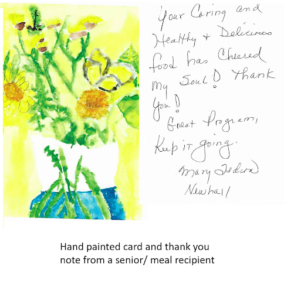 Your Caring and
Healthy + Delicious
food has Cheered
my Soul! Thank
You!
Great Program,
Keep it going.
Mary
Newhall
Hand painted card and thank you
note from a senior/ meal recipient